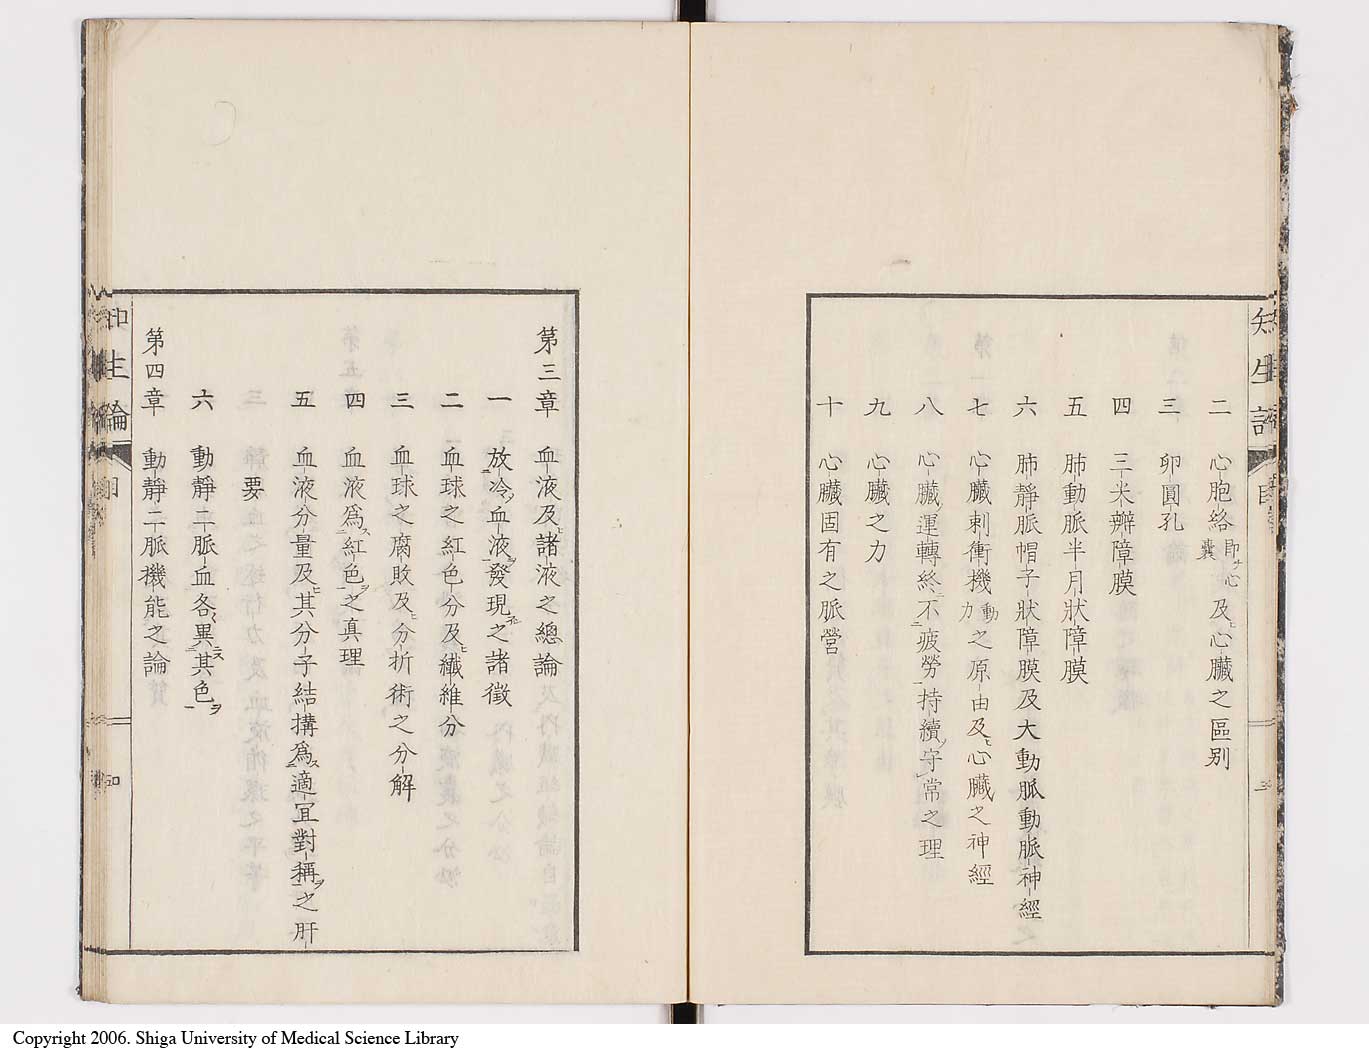 知生論
目
二 心胞絡即チ心囊及ヒ心臓之區別
三 卵圓孔
四 三米瓣障膜
五 肺動脈半月狀障膜
六 肺靜脈帽子狀障膜及大動脈動脈神經
七 心臓刺衝機動力之原由及ヒ心臓之神經
八 心臓ノ運轉終ニ不疲勞持續ノ守常之理
九 心臓之力
十 心臓固有之脈營
三
第三章 血液及ヒ諸液之總論
一 放冷ノ血液ヲ發現之諸徵
二 血球之紅色分及ヒ纖維分
三 血球之腐敗及ヒ分析術之分解
四 血液爲ス紅色ヲ之真理
五 血液分量及ヒ其分子結搆爲ス適宜對稱ヲ之肝
要
六 動靜二脈血各〻異ニス其色ヲ
第四章 動靜二脈機能之論
知生論
目
四
Copyright 2006. Shiga University of Medical Science Library